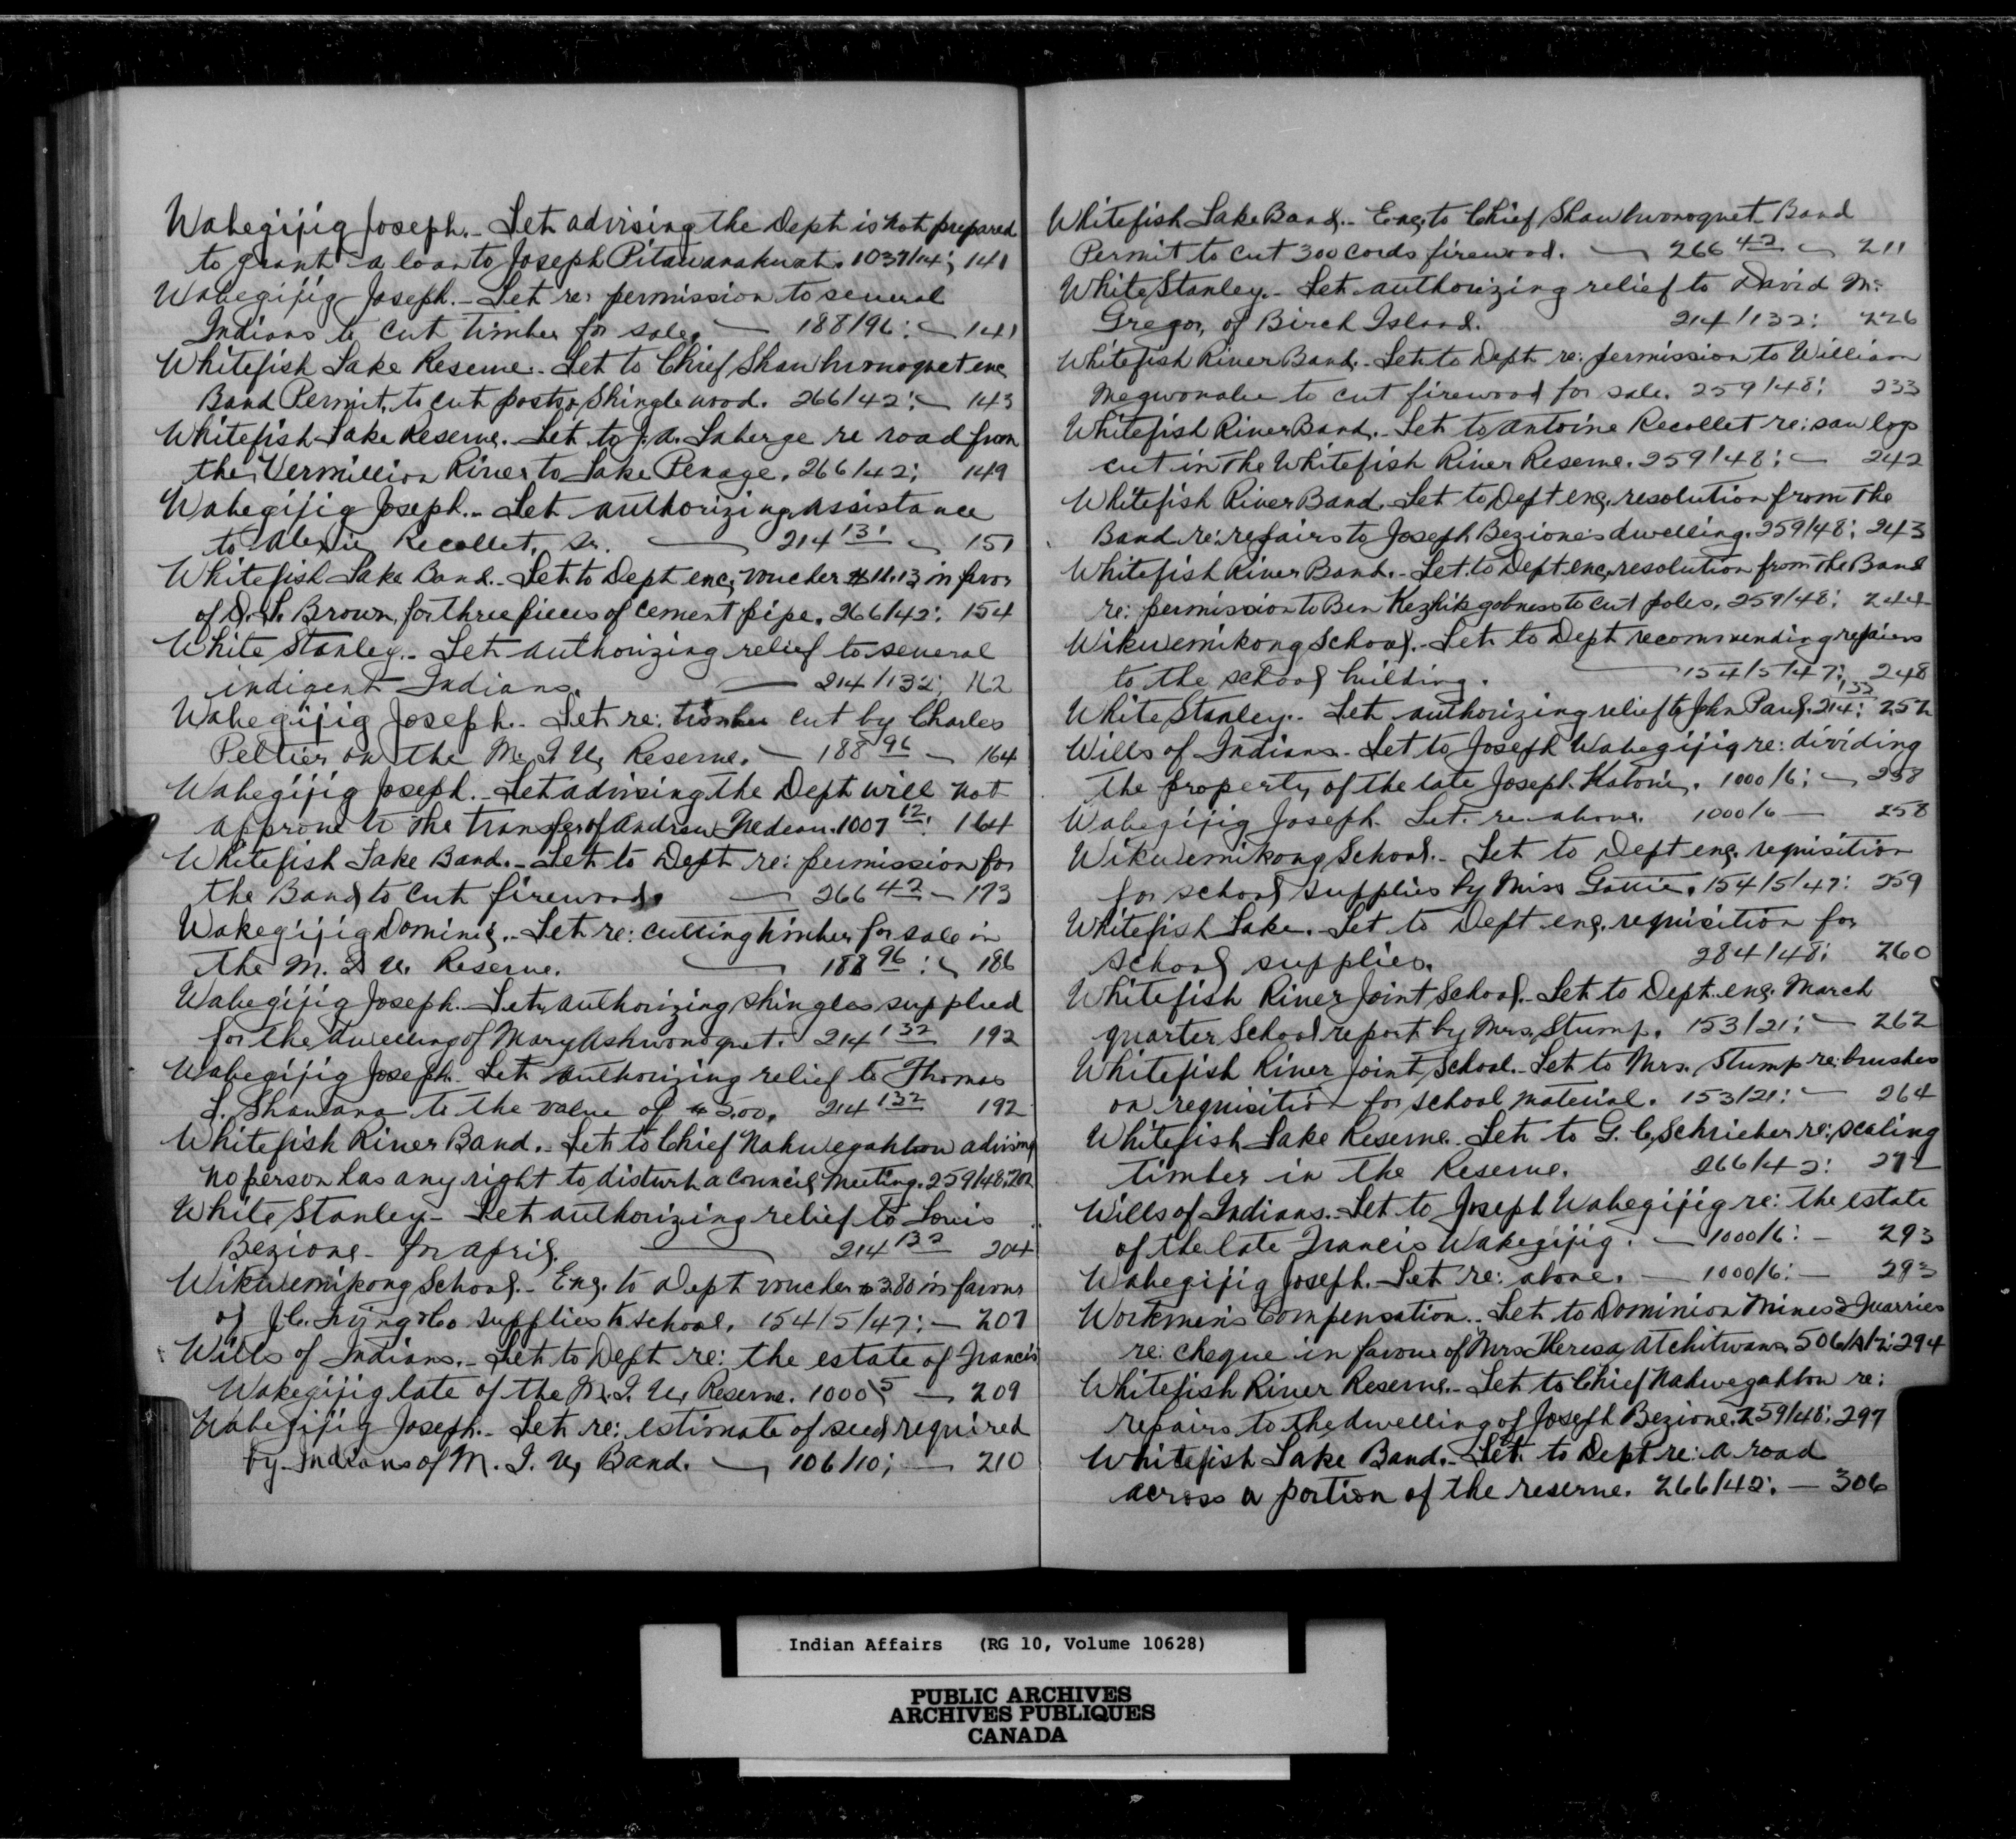 Wakegijig Joseph.- Let. advising the Dept is not prepared
to grant a loan to Joseph Pitawanakwat. 1037/14; 141
Wakegijig Joseph.- Let re: permission to several
Indians to cut timber for sale. — 188/96: — 141
Whitefish Lake Reserve.- Let to Chief Shawbwonoquet enc
Band Permit, to cut posts & Shingle wood. 266/42: — 143
Whitefish Lake Reserve.- Let. to J. A. Laberge re road from
the Vermillion River to Lake Penage. 266/42: 149
Wakegijig Joseph.- Let authorizing assistance
to Recollet, Sr. — 214 131 — 151
Whitefish Lake Band.- Let. to Dept enc, voucher $11.13 in favor
of D. L. Brown, for three pieces of cement pipe. 266/42: 154
White Stanley.- Let authorizing relief to several
indigent Indians. — 214/132: 162
Wakegijig Joseph.- Let re: timber cut by Charles
Peltier on the M. I. U, Reserve. — 188 96 — 164
Wakegijig Joseph.- Let advising the Dept will not
approve to the transfer of Andrew Nedeau. 1007 12: 164
Whitefish Lake Band.- Let to Dept re: permission for
the Band to cut firewood. — 266 42 — 173
Wakegijig Dominic.- Let re: cutting timber for sale in
the M. I. U. Reserve. — 188 96: — 186
Wakegijig Joseph.- Let, authorizing shingles supplied
for the dwelling of Mary Ashwonoquet. 214 132 192
Wakegijig Joseph.- Let authorizing relief to Thomas
L. Shawana to the value of $5.00. 214 132 192
Whitefish River Band.- Let to Chief Nahwegahbow advising
no person has any right to disturb a Council Meeting. 259/48: 202
White Stanley- Let authorizing relief to Louis
Bezione- for April. — 214 132 204
Wikwemikong School.- Enc. to Dept voucher $3.80 in favour
of J. C. Irving & Co supplies to school. 154/5/47: — 207
Wills of Indians.- Let to Dept re: the estate of Francis
Wakegijig late of the M. I. U, Reserve. 1000 5 — 209
Wakegijig Joseph.- Let re: estimate of seed required
by Indians of M. I. U, Band. — 106/10; — 210
Whitefish Lake Band.- Enc, to Chief Shawbwonoquet Band
Permit to cut 300 cords firewood. — 266 42 — 211
White Stanley.- Let authorizing relief to David Mc
Gregor, of Birch Island. 214/132: 226
Whitefish River Band.- Let to Dept re: permission to William
Megwonabe to cut firewood for sale. 259/48: 233
Whitefish River Band.- Let to Antoine Recollet re: saw logs
cut in the Whitefish River Reserve. 259/48: — 242
Whitefish River Band. Let to Dept enc, resolution from the
Band re: repairs to Joseph Bezione's dwelling. 259/48: 243
Whitefish River Band.- Let. to Dept enc, resolution from the Band
re: permission to Ben to cut poles. 259/48: 244
Wikwemikong School.- Let to Dept recommending repairs
to the school building. — 154/5/47: 248
White Stanley.- Let authorizing relief to John Paul. 214: 132 252
Wills of Indians- Let to Joseph Wakegijig re: dividing
the property of the late Joseph. 1000/6: — 258
Wakegijig Joseph. Let. re above. 1000/6 — 258
Wikwemikong School.- Let to Dept enc. requisition
for school supplies by Miss Gottie. 154/5/47: 259
Whitefish Lake.- Let to Dept enc. requisition for
School supplies. 284/48: 260
Whitefish River Joint School.- Let to Dept. enc. March
quarter School report by Mrs, Stump. 153/21: — 262
Whitefish River Joint School.- Let to Mrs. Stump re: brushes
on requisition for school material. 153/21: — 264
Whitefish Lake Reserve.- Let to G. C, Schrieber re: scaling
timber in the Reserve. 266/42: 272
Wills of Indians.- Let to Joseph Wakegijig re: the estate
of the late Francis Wakegijig. — 1000/6: — 293
Wakegijig Joseph.- Let re: above. — 1000/6: — 293
Workmen's Compensation.- Let to Dominion Mines & Quarries
re: cheque in favour of Mrs Theresa Atchitwans. 294
Whitefish River Reserve.- Let to Chief Nahwegahbow re:
repairs to the dwelling of Joseph Bezione. 259/48: 297
Whitefish Lake Band.- Let. to Dept re: a road
across a portion of the reserve. 266/42: — 306
Indian Affairs (RG 10, Volume 10628)
PUBLIC ARCHIVES
ARCHIVES PUBLIQUES
CANADA